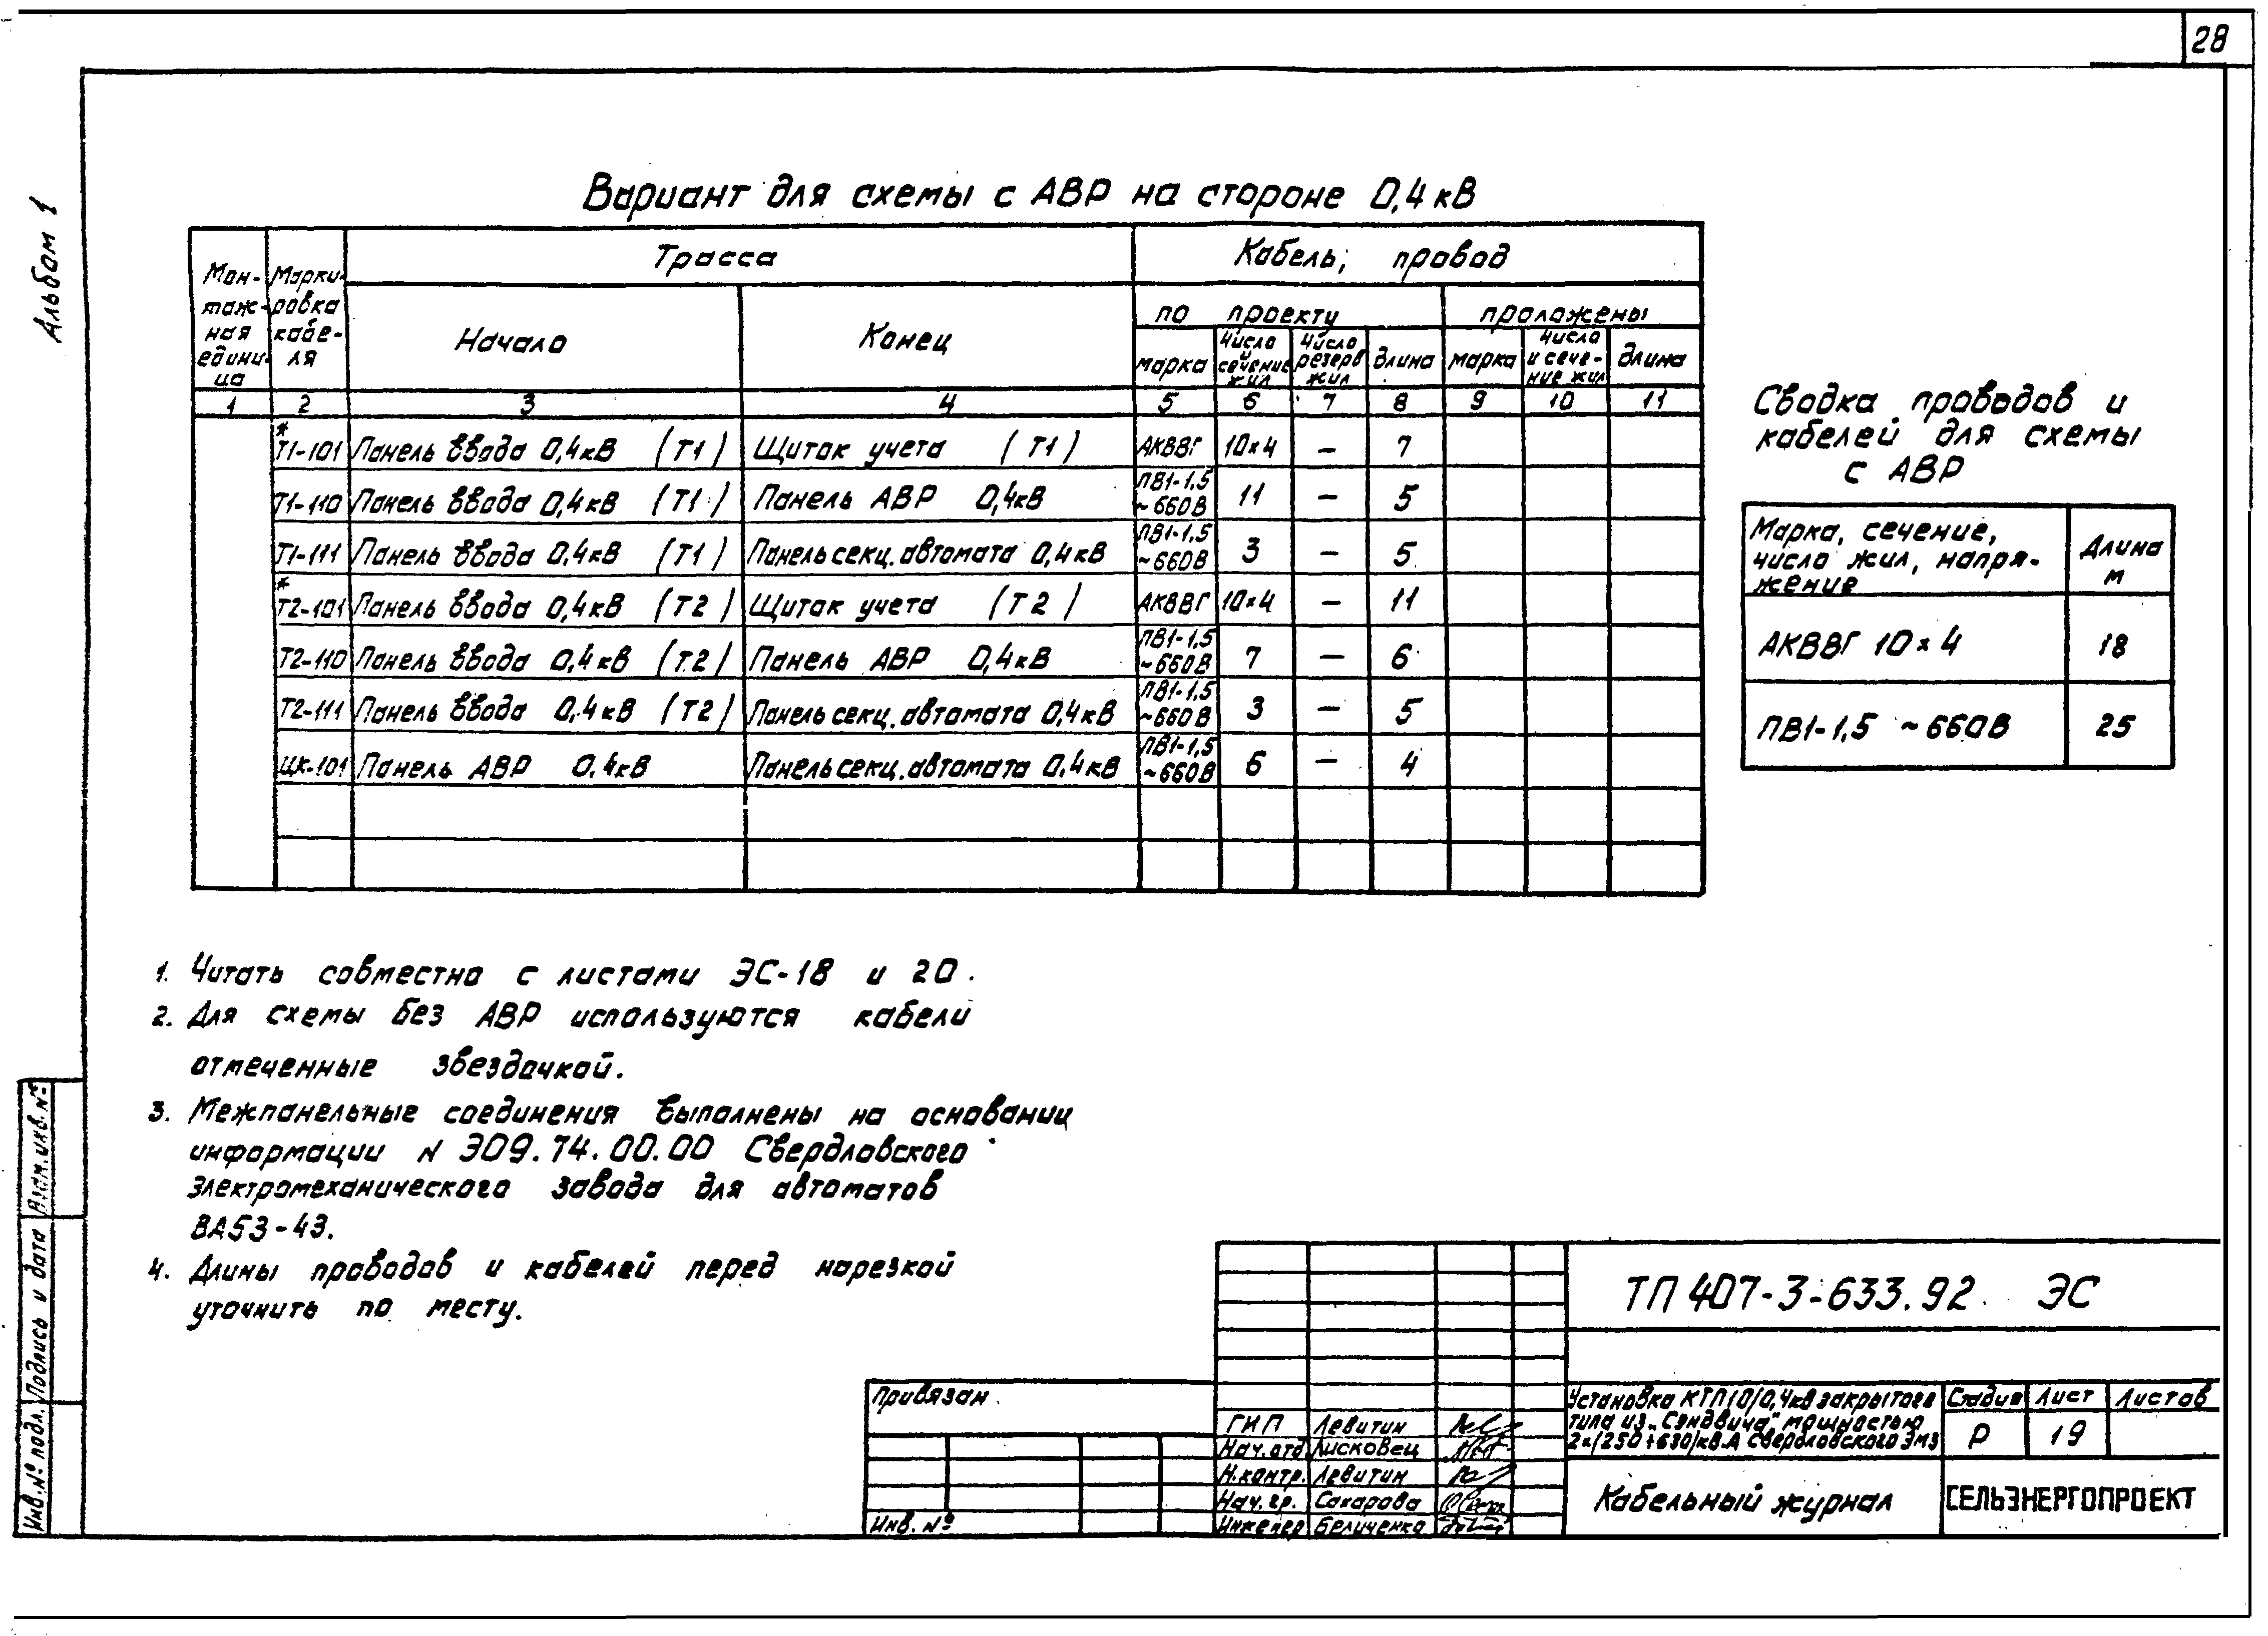 28
Альбом 1
Вариант для схемы с АВР на стороне 0,4кВ
Мон-
таж-
ная
едини-
ца
Марки-
ровка
кабе-
ля
Трасса
Начало
Конец
Кабель, провод
по проекту
проложены
марка
Число и сечение жил
Число резерв жил
длина
марка
Число и сече-
ние жил
длина
1 2 3 4 5 6 7 8 9 10 11
* Т1-101 Панель ввода 0,4кВ (Т1) Щиток учета (Т1) АКВВГ 10×4 — 7
Т1-110 Панель ввода 0,4кВ (Т1) Панель АВР 0,4кВ ПВ1-1,5 ~660В 11 — 5
Т1-111 Панель ввода 0,4кВ (Т1) Панель секц. автомата 0,4кВ ПВ1-1,5 ~660В 3 — 5
* Т2-101 Панель ввода 0,4кВ (Т2) Щиток учета (Т2) АКВВГ 10×4 — 11
Т2-110 Панель ввода 0,4кВ (Т2) Панель АВР 0,4кВ ПВ1-1,5 ~660В 7 — 6
Т2-111 Панель ввода 0,4кВ (Т2) Панель секц. автомата 0,4кВ ПВ1-1,5 ~660В 3 — 5
ЦК-101 Панель АВР 0,4кВ Панель секц. автомата 0,4кВ ПВ1-1,5 ~660В 6 — 4
Сводка проводов и
кабелей для схемы
с АВР
Марка, сечение,
число жил, напря-
жение
Длина
м
АКВВГ 10×4 18
ПВ1-1,5 ~660В 25
1. Читать совместно с листами ЭС-18 и 20.
2. Для схемы без АВР используются кабели
отмеченные звездочкой.
3. Межпанельные соединения выполнены на основании
информации N ЭО9.74.00.00 Свердловского
Электромеханического завода для автоматов
ВА53-43.
4. Длины проводов и кабелей перед нарезкой
уточнить по месту.
Взам.инв.№
Подпись и дата
Инв.№ подл.
Привязан
Инв. №
ГИП Левитин
Нач.отд Лисковец
Н.контр. Левитин
Нач. гр. Сахарова
Инженер Беличенко
ТП 407-3-633.92 ЭС
Установка КТП10/0,4кв закрытого
типа из „Сэндвича" мощностью
2×(250÷630)кВ.А Свердловского ЭМЗ
Стадия Лист Листов
Р 19
Кабельный журнал
СЕЛЬЭНЕРГОПРОЕКТ